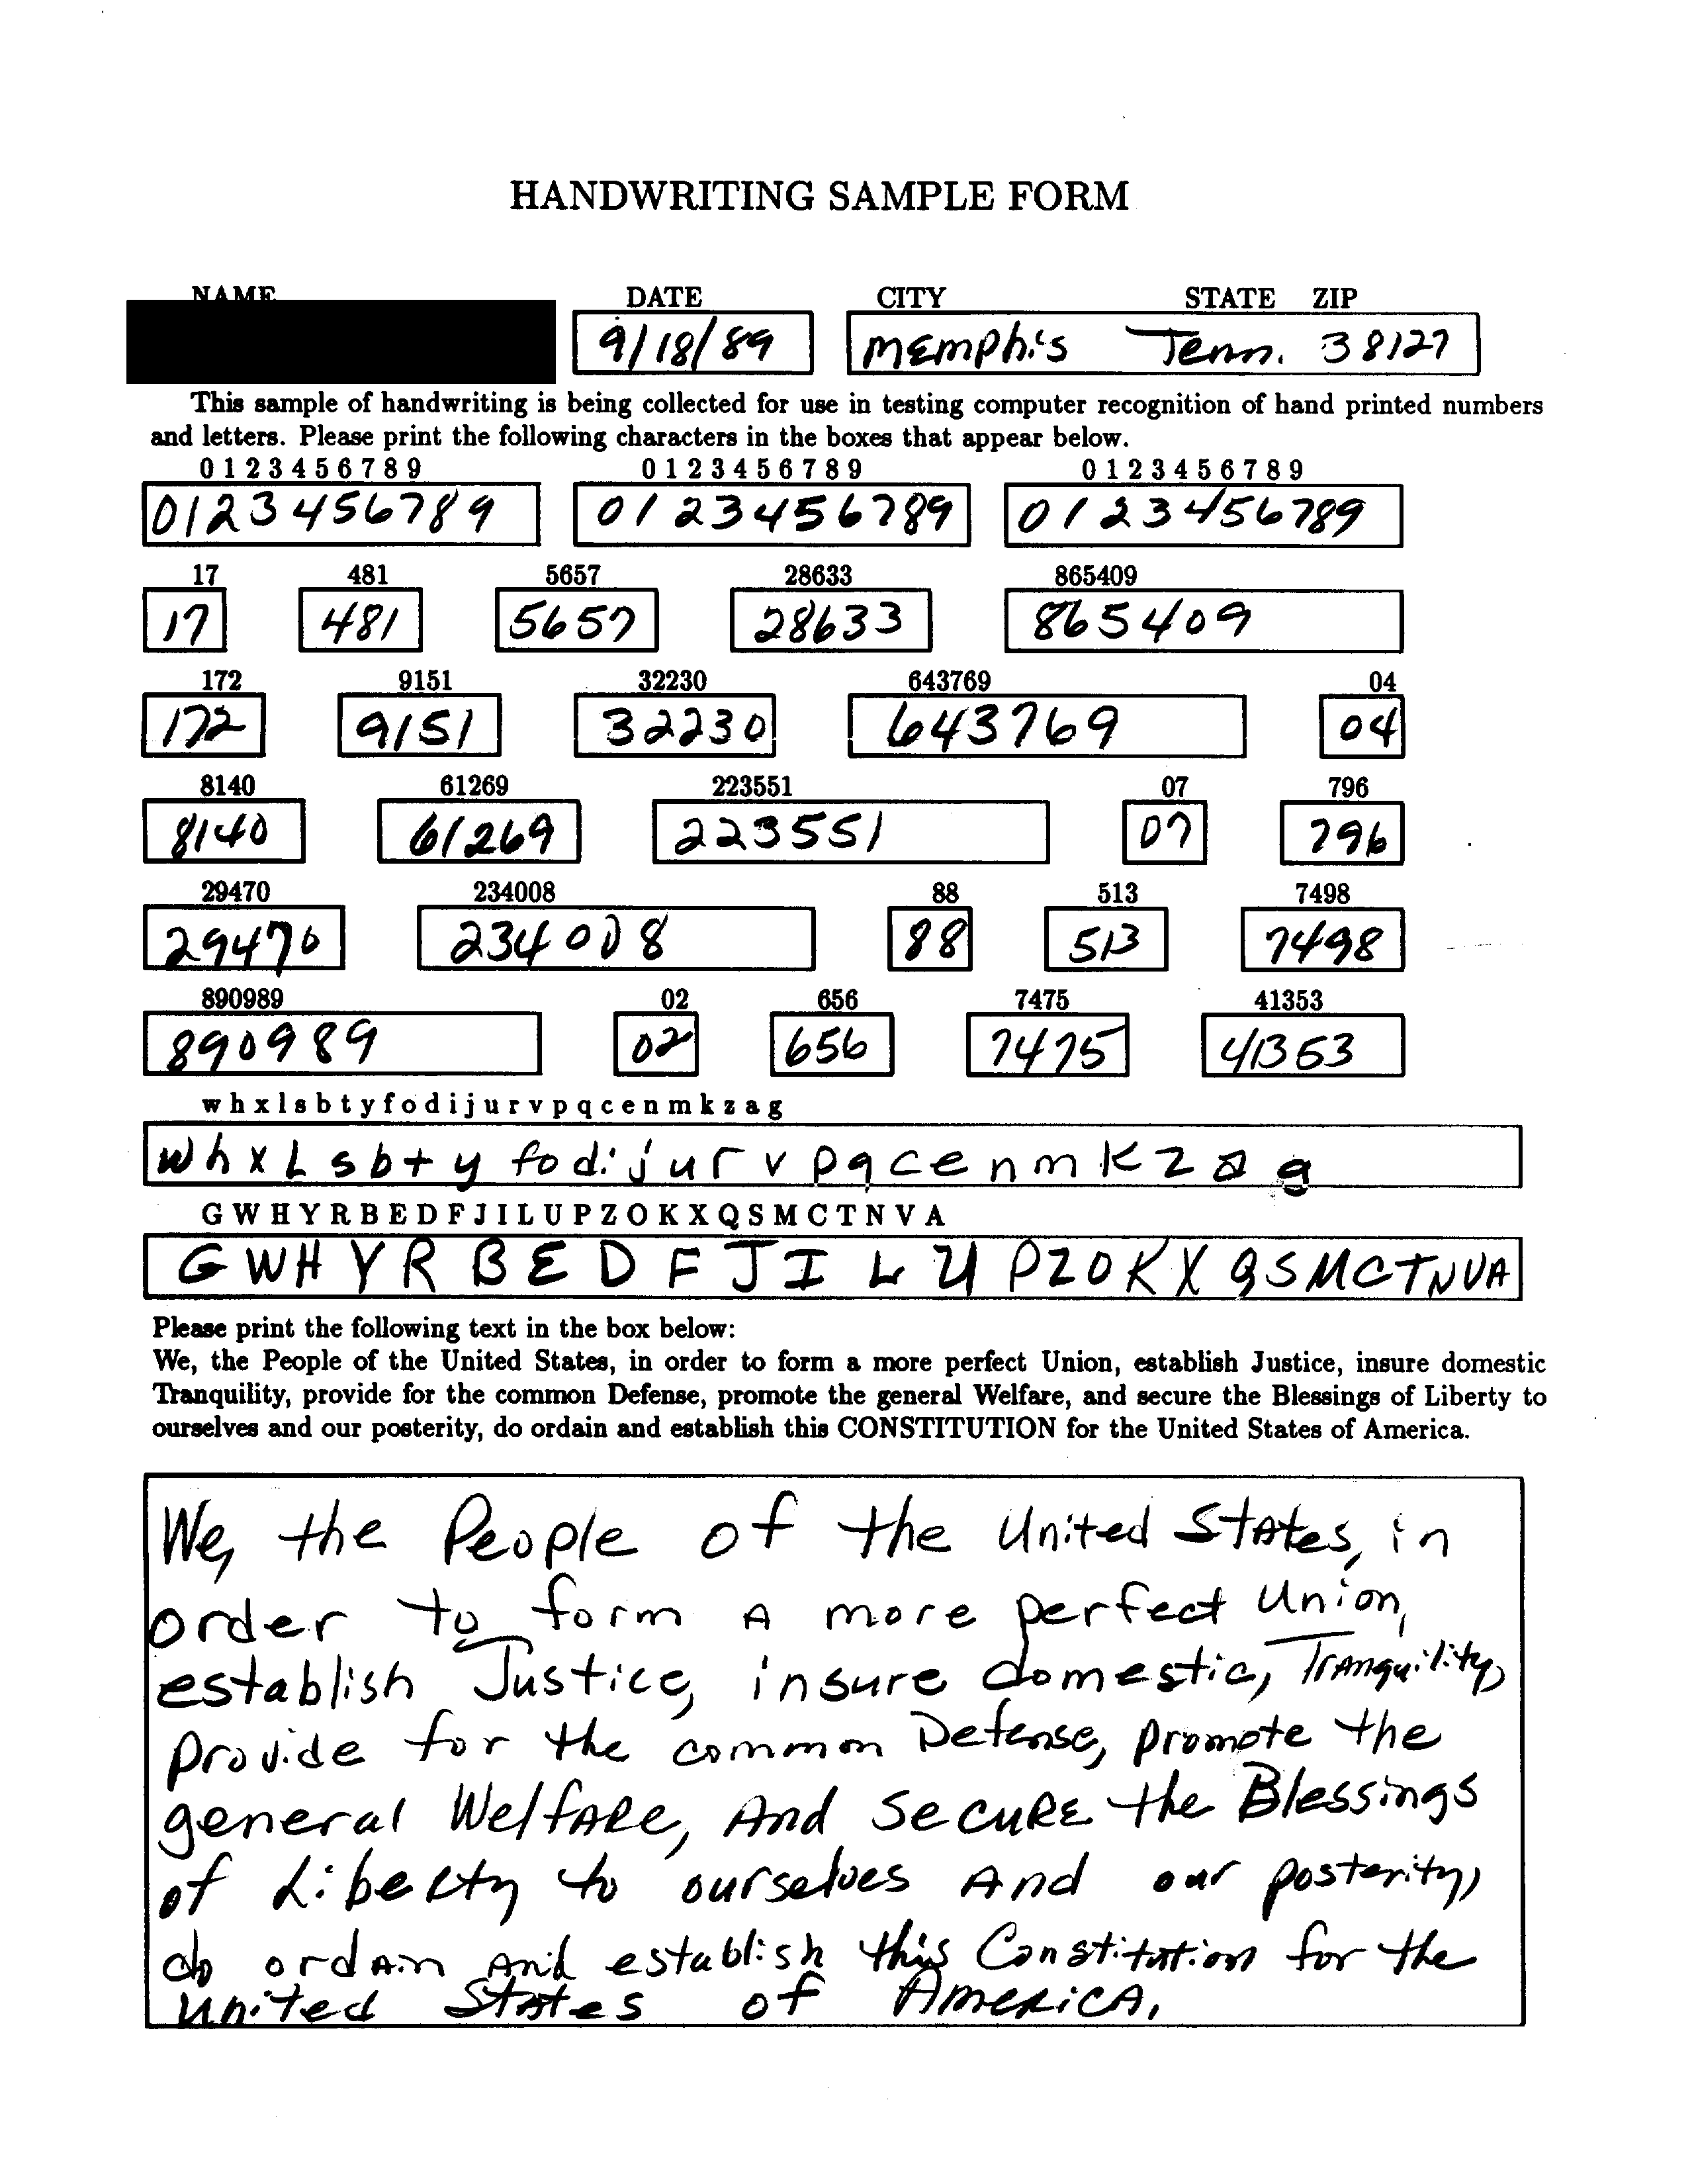 HANDWRITING SAMPLE FORM
NAME DATE CITY STATE ZIP
9/18/89 MEMphis Tenn. 38127
This sample of handwriting is being collected for use in testing computer recognition of hand printed numbers
and letters. Please print the following characters in the boxes that appear below.
0 1 2 3 4 5 6 7 8 9 0 1 2 3 4 5 6 7 8 9 0 1 2 3 4 5 6 7 8 9
0123456789 0123456789 0123456789
17 481 5657 28633 865409
17 481 5657 28633 865409
172 9151 32230 643769 04
172 9151 32230 643769 04
8140 61269 223551 07 796
8140 61269 223551 07 796
29470 234008 88 513 7498
29470 234008 88 513 7498
890989 02 656 7475 41353
890989 02 656 7475 41353
w h x l s b t y f o d i j u r v p q c e n m k z a g
w h x L s b t y f o d i j u r v p q c e n m K z a g
G W H Y R B E D F J I L U P Z O K X Q S M C T N V A
G W H Y R B E D F J I L U P Z O K X Q S M C T N V A
Please print the following text in the box below:
We, the People of the United States, in order to form a more perfect Union, establish Justice, insure domestic
Tranquility, provide for the common Defense, promote the general Welfare, and secure the Blessings of Liberty to
ourselves and our posterity, do ordain and establish this CONSTITUTION for the United States of America.
We, the People of the United StAtes, in
order to form A more perfect Union,
establish Justice, insure domestic, TrAnquility,
provide for the common Defense, promote the
general WelfARe, And SecuRE the Blessings
of Liberty to ourselves And our posterity,
do ordAin And establish this Constitution for the
United StAtes of AmeRicA.